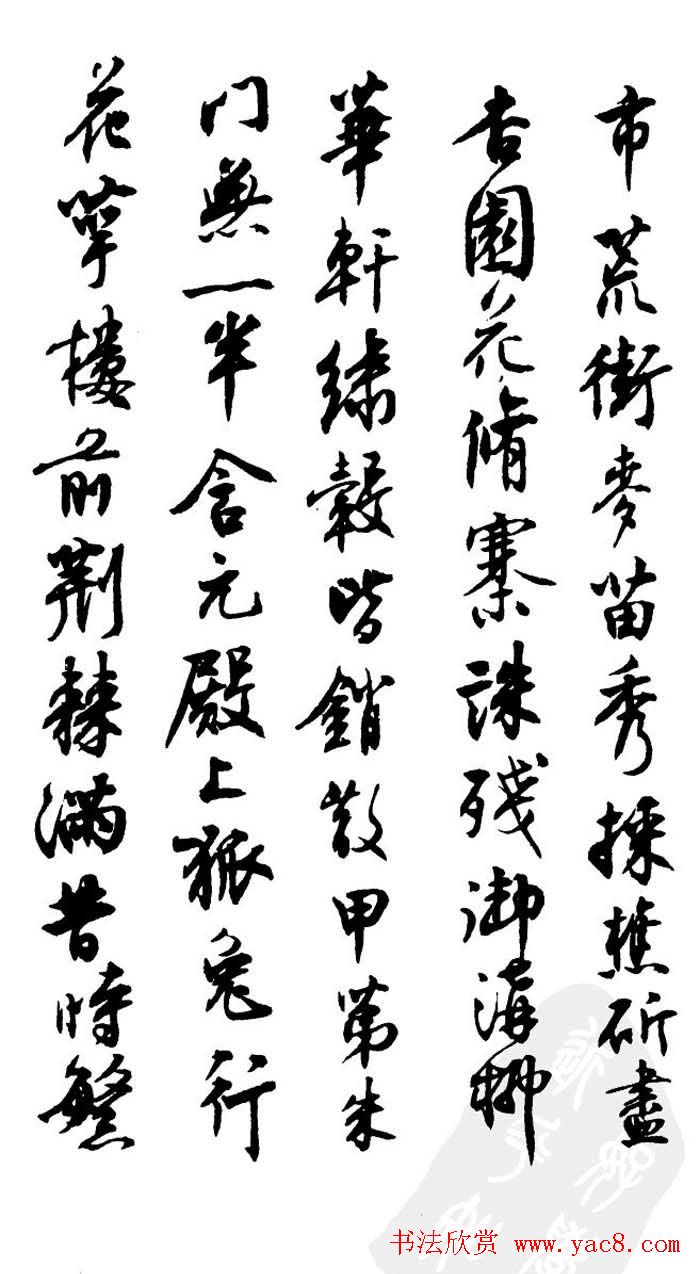 市荒街麥苗秀採樵斫盡
杏園花脩寨誅殘御溝柳
華軒繡轂皆銷散甲第朱
門無一半含元殿上狐兔行
花萼樓前荆棘滿昔時繁
书法欣赏 www.yac8.com